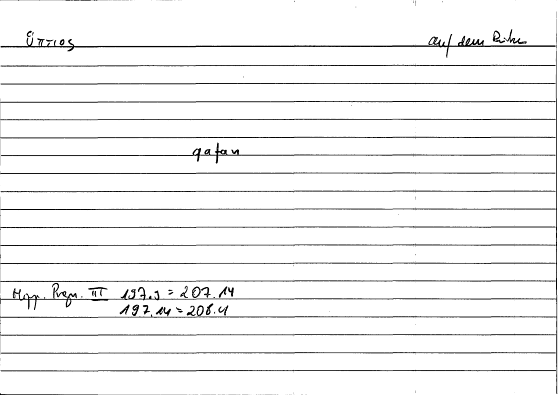 ὕπτιος auf dem Rücken
qafan
Hipp. Progn. III 197.9 = 207.14
197.14 = 208.4